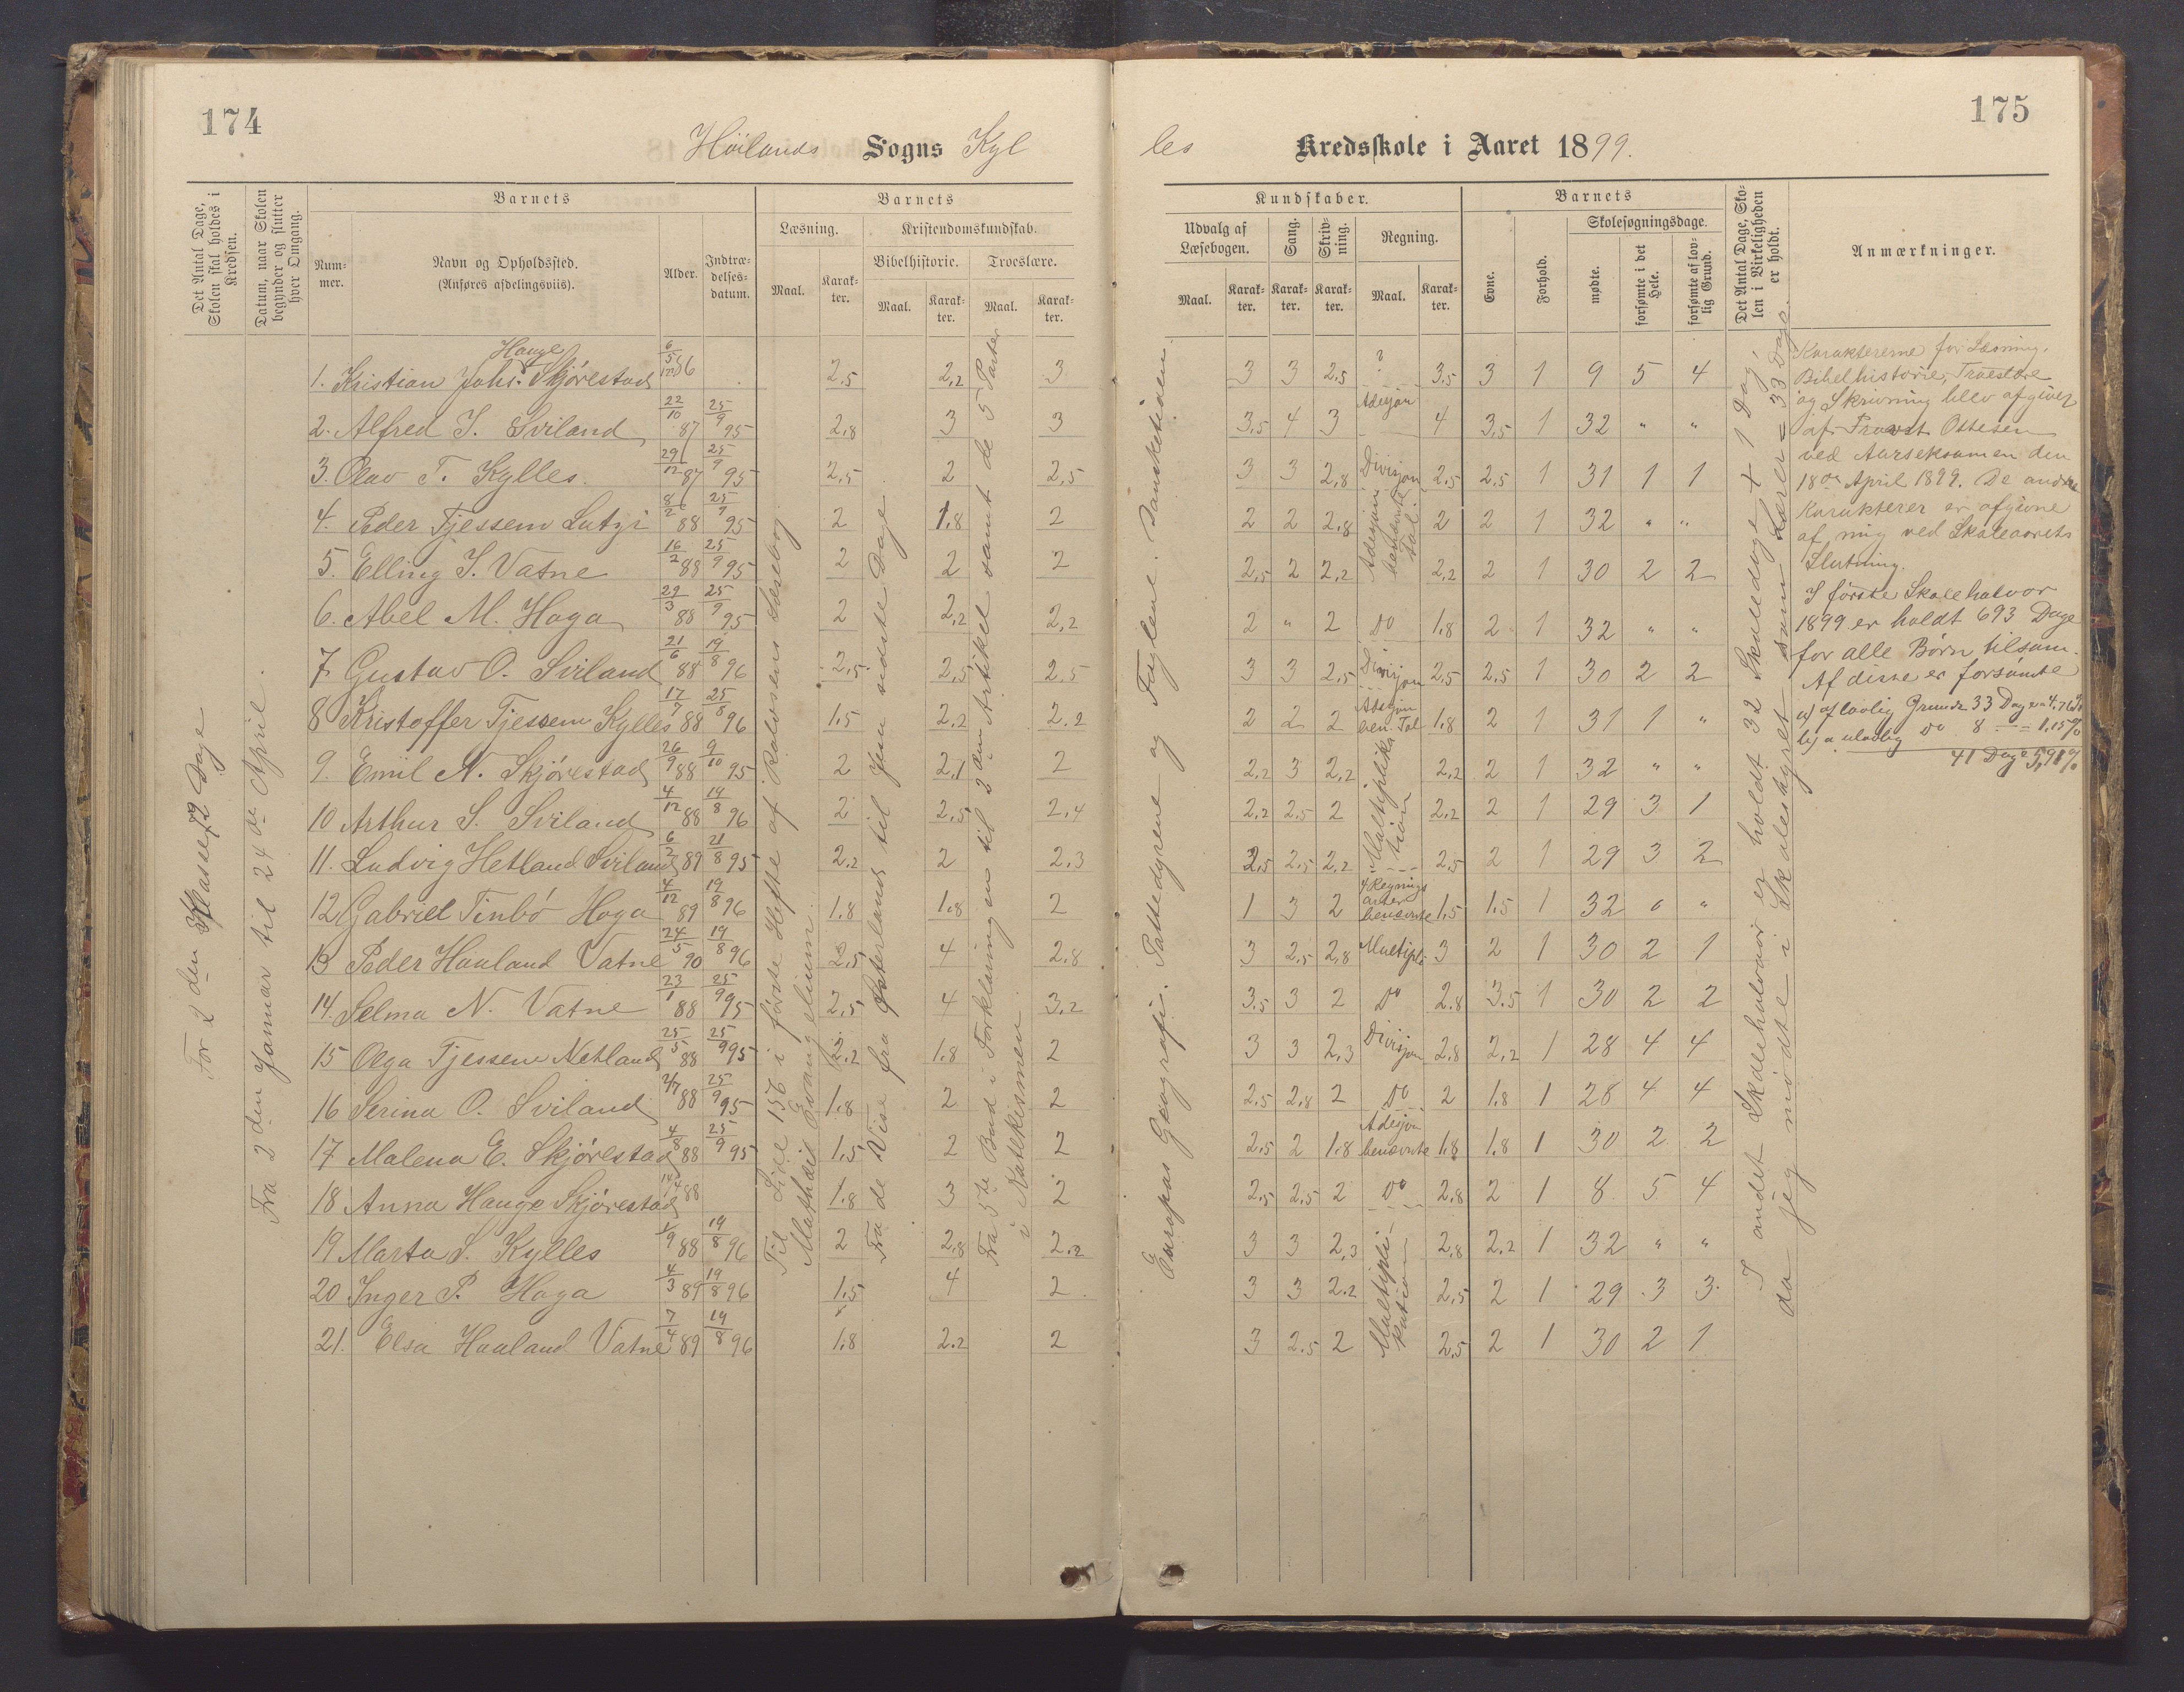 174
175
Höilands Sogns Kyl
les Kredsskole i Aaret 1899.
Det Antal Dage, Skolen skal holdes i Kredsen.
Datum, naar Skolen begynder og slutter hver Omgang.
Barnets
Num-mer.
Navn og Opholdssted.
(Anføres afdelingsviis).
Alder.
Indtræ-delses-datum.
Barnets
Læsning.
Maal.
Karak-ter.
Kristendomskundskab.
Bibelhistorie.
Maal.
Karak-ter.
Troeslære.
Maal.
Karak-ter.
Kundskaber.
Udvalg af Læsebogen.
Maal.
Karak-ter.
Sang.
Karak-ter.
Skriv-ning.
Karak-ter.
Regning.
Maal.
Karak-ter.
Barnets
Evne.
Forhold.
Skolesøgningsdage.
mødte.
forsømte i det Hele.
forsømte af lov-lig Grund.
Det Antal Dage, Sko-len i Virkeligheden er holdt.
Anmærkninger.
For 2den Klasse 72 Dage
Fra 2den Januar til 24de April.
Til Side 156 i første Hefte af Rolvsens Læsebog.
Matthdis Evangelium.
Fra de Vise fra Østerland til Jesu sidste Dage.
Fra 5te Bud i Forklaringen til 2den Artikel samt de 5 Parter
i Katekismen.
Europas Geografi. Pattedyrene og Fuglene. Dansketiden.
I andet Skolehalvaar er holdt 32 Skoledage + 1 Dag,
da jeg mødte i Skoleshyret som Lærer = 33 Dage.
1. Kristian Johs. Hauge Skjørestad 6/5 86 2,5 2,2 3 3 3 2,5 ? 3,5 3 1 9 5 4
2. Alfred I. Sviland 22/10 87 25/9 95 2,8 3 3 3,5 4 3 Adisjon 4 3,5 1 32 " "
3. Olav T. Kylles. 29/12 87 25/9 95 2,5 2 2,5 3 3 2,8 Divisjon 2,5 2,5 1 31 1 1
4. Peder Tjessem Lutzi 8/2 88 25/9 95 2 1,8 2 2 2 2,8 Adisjon benævnte Tal. 2 2 1 32 " "
5. Elling I. Vatne 16/2 88 25/9 95 2 2 2 2,5 2 2,2 2,2 2 1 30 2 2
6. Abel M. Hoga 29/3 88 25/9 95 2 2,2 2,2 2 " 2 Do 1,8 2 1 32 " "
7. Gustav O. Sviland 21/6 88 19/8 96 2,5 2,5 2,5 3 3 2,5 Divisjon 2,5 2,5 1 30 2 2
8 Kristoffer Tjessem Kylles 17/7 88 25/8 96 1,5 2,2 2,2 2 2 2 Adisjon ben. Tal 1,8 2 1 31 1 "
9. Emil N. Skjørestad 26/9 88 9/10 95 2 2,1 2 2,2 3 2,2 Multiplika-tion 2,2 2 1 32 " "
10 Arthur S. Sviland 4/12 88 19/8 96 2 2,5 2,4 2,2 2,5 2 2,2 2 1 29 3 1
11. Ludvig Hetland Sviland 6/2 89 21/8 95 2,2 2 2,3 2,5 2,5 2,2 2,5 2 1 29 3 2
12 Gabriel Tinbø Hoga 4/12 89 19/8 96 1,8 1,8 2 1 3 2 4 Regnings arter benævnte 1,5 1,5 1 32 0 "
13 Peder Haaland Vatne 24/5 90 19/8 96 2,5 4 2,8 3 2,5 2,8 Multipli 3 2 1 30 2 1
14. Selma N. Vatne 23/1 88 25/9 95 2,5 4 3,2 3,5 3 2 Do 2,8 3,5 1 30 2 2
15 Olga Tjessem Netland 25/5 88 25/9 95 2,2 1,8 2 3 3 2,3 Divisjon 2,8 2,2 1 28 4 4
16 Serina O. Sviland 2/7 88 25/9 95 1,8 2 2 2,5 2,8 2 Do 2 1,8 1 28 4 4
17 Malena E. Skjørestad 4/8 88 25/9 95 1,5 2 2 2,5 2 1,8 Adisjon benævnte 1,8 1,8 1 30 2 2
18 Anna Hauge Skjørestad 88 1,8 3 2 2,5 2,5 2 Do 2,8 2 1 8 5 4
19 Marta S. Kylles 1/9 88 19/8 96 2 2,8 2,2 3 3 2,3 Multipli-kation 2,8 2,2 1 32 " "
20 Inger P. Hoga 4/3 89 19/8 96 1,5 4 2 3 3 2,2 2,5 2 1 29 3 3
21. Elsa Haaland Vatne 7/4 89 19/8 96 1,8 2,2 2 3 2,5 2 2,5 2 1 30 2 1
Karaktererne for Læsning,
Bibelhistorie, Troeslære
og Skrivning blev afgivet
af Provst Ottesen
ved Aarseksamen den
18de April 1899. De andre
Karakterer er afgivne
af mig ved Skoleaarets
Slutning.
I første Skolehalvaar
1899 er holdt 693 Dage
for alle Børn tilsam.
Af disse er forsømte
a) af lovlig Grund 33 Dage = 4,76%
b) " ulovlig Do 8 - = 1,15%
41 Dage 5,91%